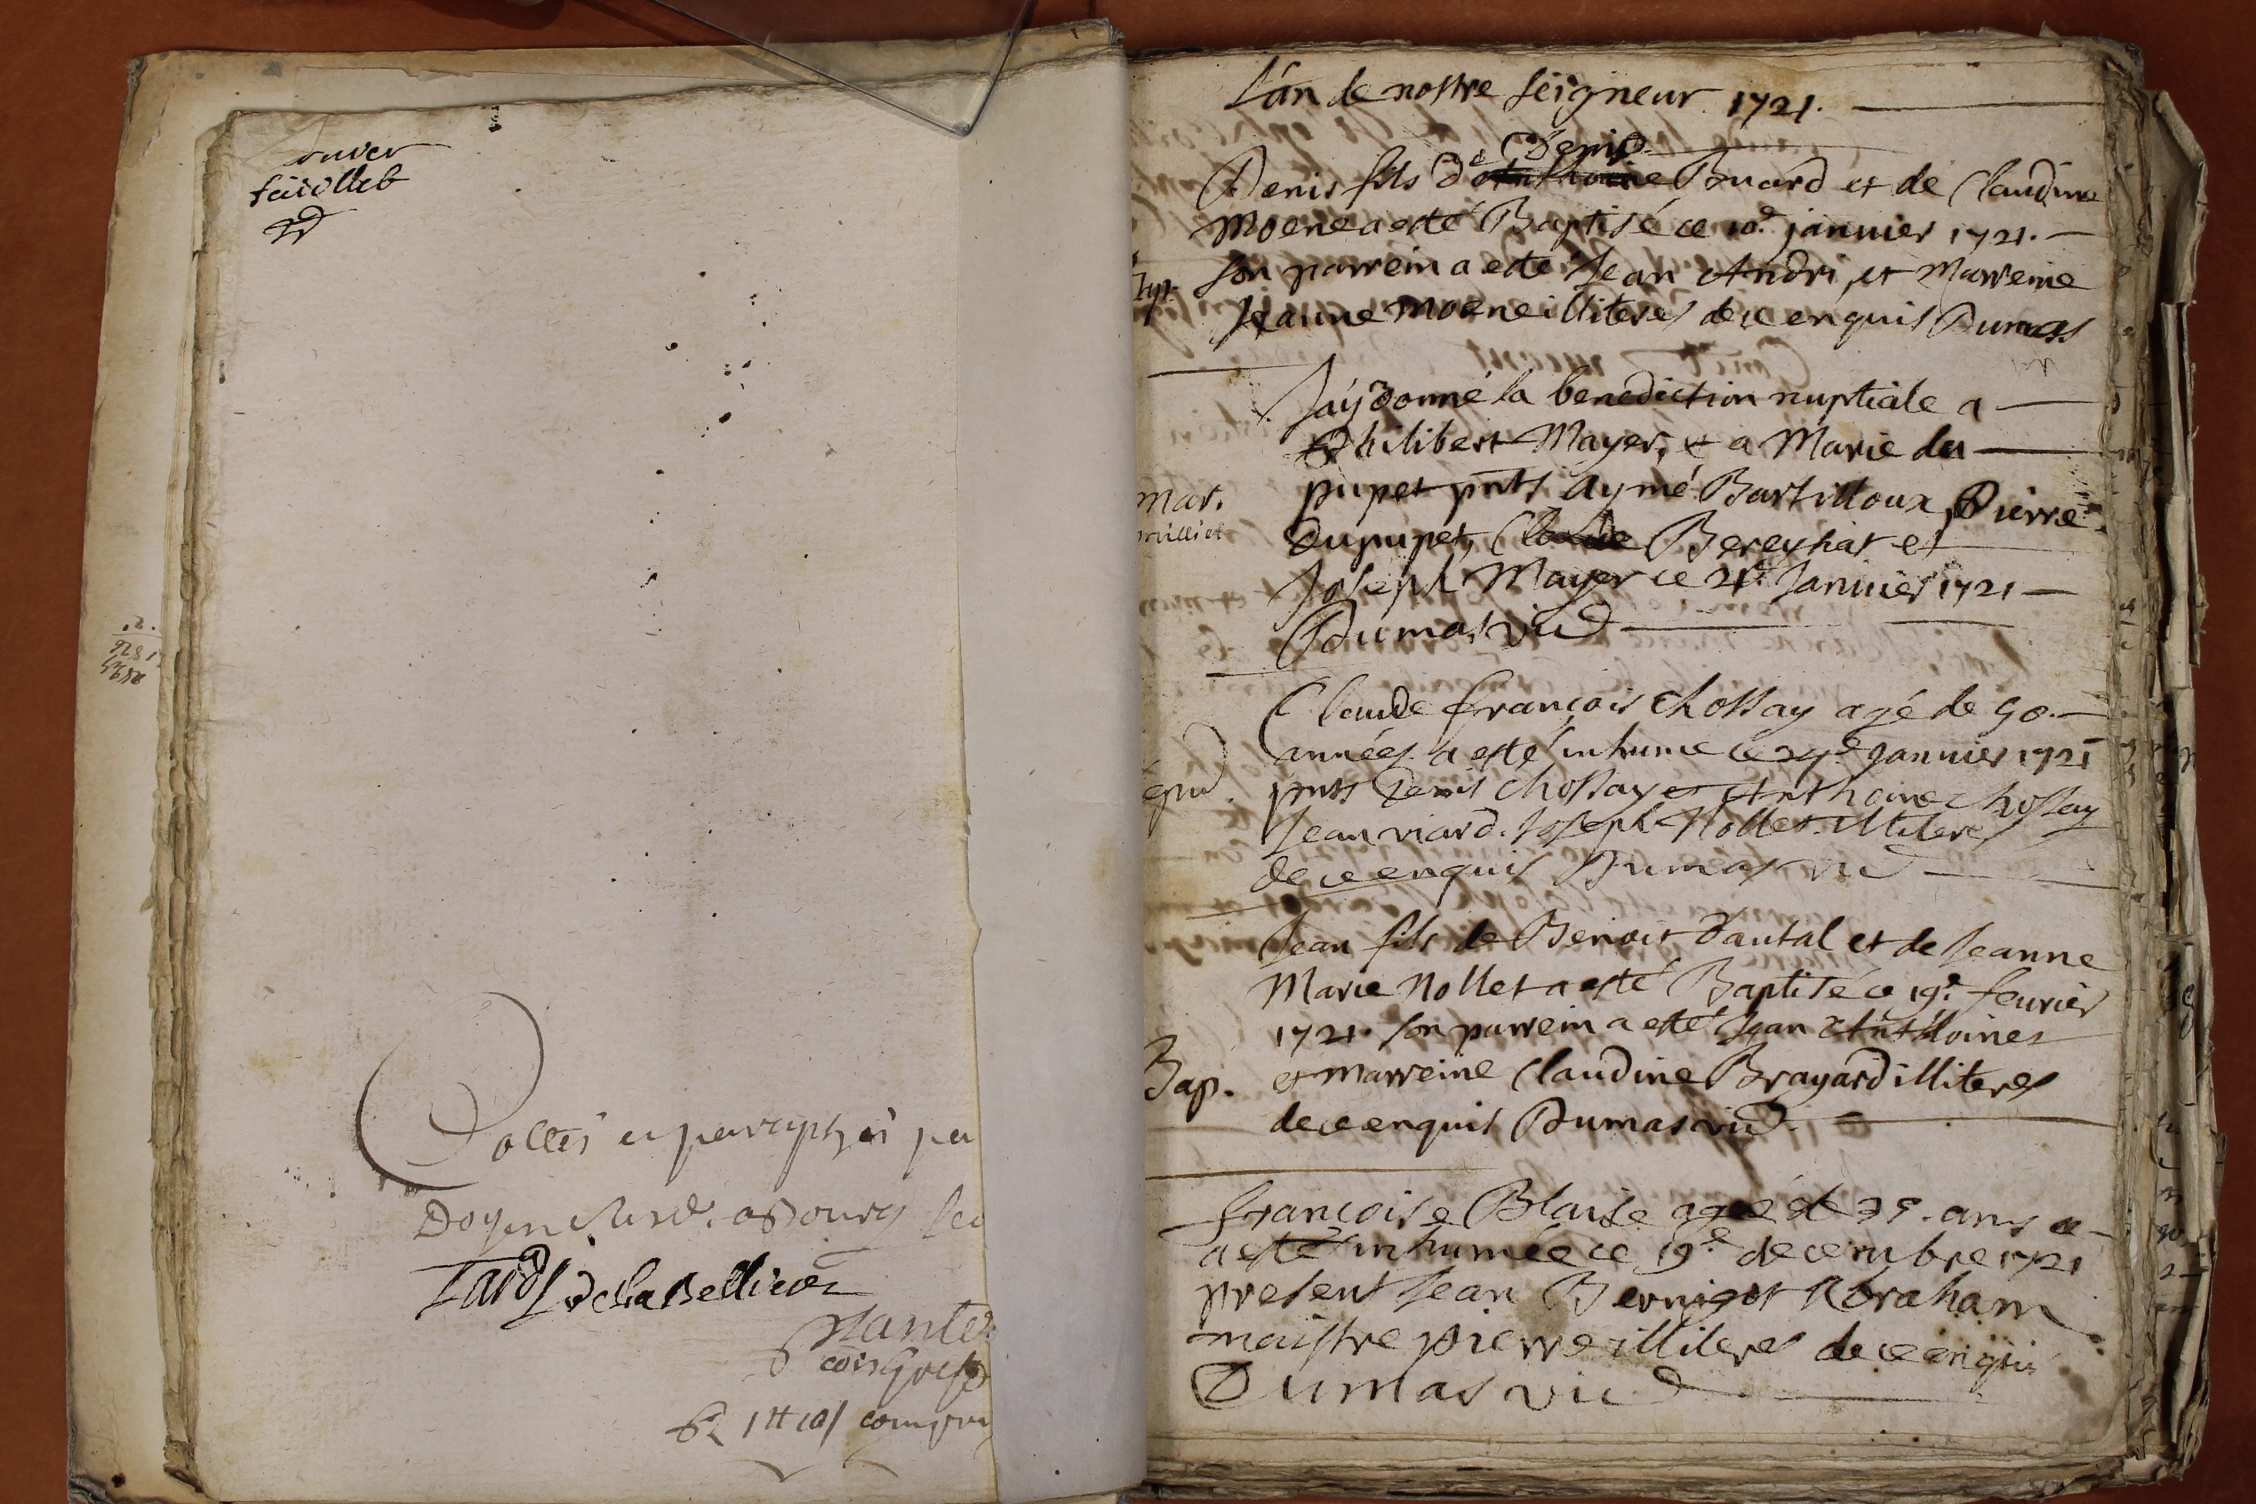 feuillet
Cottés et paraphés pa
Doyen
de la Bellicor
L'an de nostre seigneur 1721.
Denis
Denis fils de Anthoine Buard et de Claudine
Moene a esté Baptisé ce 10e janvier 1721.
son parrein a esté Jean Andri, et Marreine
Jeanne Moene illiteres de ce enquis Dumas
J'ay donné la benediction nuptiale a
Philibert Mayer, et a Marie du
mar.
pupet pnts Aymé Bartilloux, Pierre
Dupupet, Claude Bereyhat et
Joseph Mayer ce 21e Janvier 1721
Dumas vic
Claude François Chossay agé de 50.
années a esté inhumé ce 27e Janvier 1721
pnts Denis Chossay et Anthoine Chossay
Jean viard. Joseph Nollet. illiteres
de ce enquis Dumas vic
Jean fils de Benoit Dautal et de Jeanne
Marie Nollet a esté Baptisé ce 19e. fevrier
1721. son parrein a esté Jean Anthoine
Bap. et marreine Claudine Brayard illiteres
de ce enquis Dumas vic
françoise Blaise agée de 35. ans
a esté inhumée ce 19e decembre 1721
present Jean Bernigot Abraham
maistre pierre illiteres de ce enquis
Dumas vic